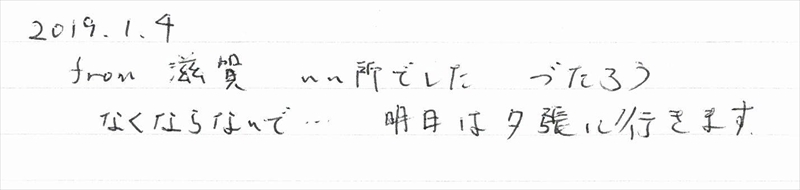 2019.1.4
from 滋賀 いい所でした づたろう
なくならないで… 明日は夕張に行きます